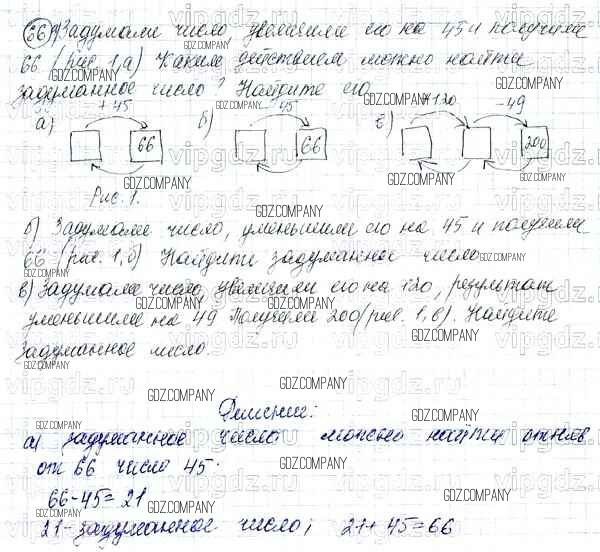 66 а) Задумали число, увеличили его на 45 и получили
66 (рис. 1, а) Каким действием можно найти
задуманное число? Найдите его
а) +45 б) -45 в) +120 -49
66 66 200
Рис. 1.
б) Задумали число, уменьшили его на 45 и получили
66 (рис. 1, б) Найдите задуманное число
в) Задумали число, увеличили его на 120, результат
уменьшили на 49 Получили 200 (рис. 1, в). Найдите
задуманное число.
Решение:
а) задуманное число можно найти отняв
от 66 число 45.
66-45=21
21 - задуманное число; 21+45=66
GDZ.COMPANY
vipgdz.ru